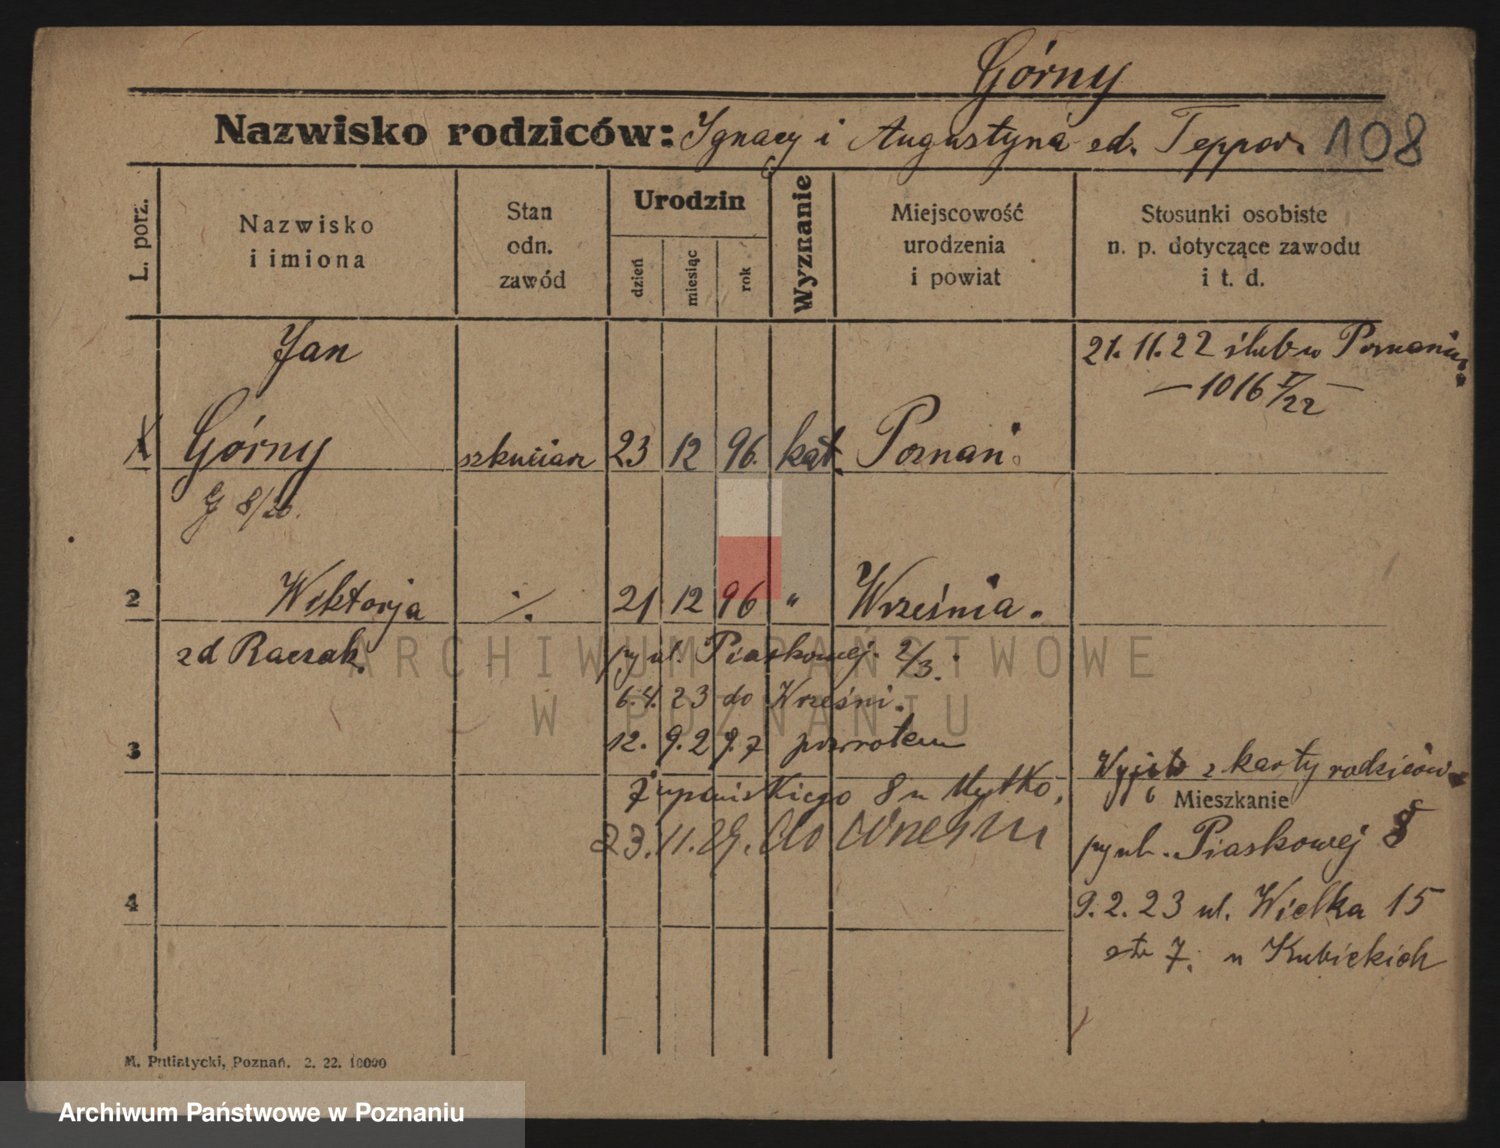 Górny
Nazwisko rodziców: Ignacy i Augustyna zd. Teppor. 108
L. porz.
Nazwisko
i imiona
Stan
odn.
zawód
Urodzin
dzień
miesiąc
rok
Wyznanie
Miejscowość
urodzenia
i powiat
Stosunki osobiste
n. p. dotyczące zawodu
i t. d.
Jan
21. 11. 22 ślub w Poznaniu
— 1016 I/22 —
1 Górny 23 12 96. kat. Poznań
G 8/20.
2 Wiktorja ./. 21 12 96 " Września.
zd Raczak
ul. Piaskowej 2/3.
6. 4. 23 do Wrześni.
12. 9. 2 powrotem
3
z karty rodziców
Mieszkanie
8 u
23. 11. 29. do Wrześni
ul. Piaskowej
4
9. 2. 23 ul. Wielka 15
7. u Kubickich
M. Putiatycki, Poznań. 2. 22. 10000
ARCHIWUM PAŃSTWOWE
W POZNANIU
Archiwum Państwowe w Poznaniu